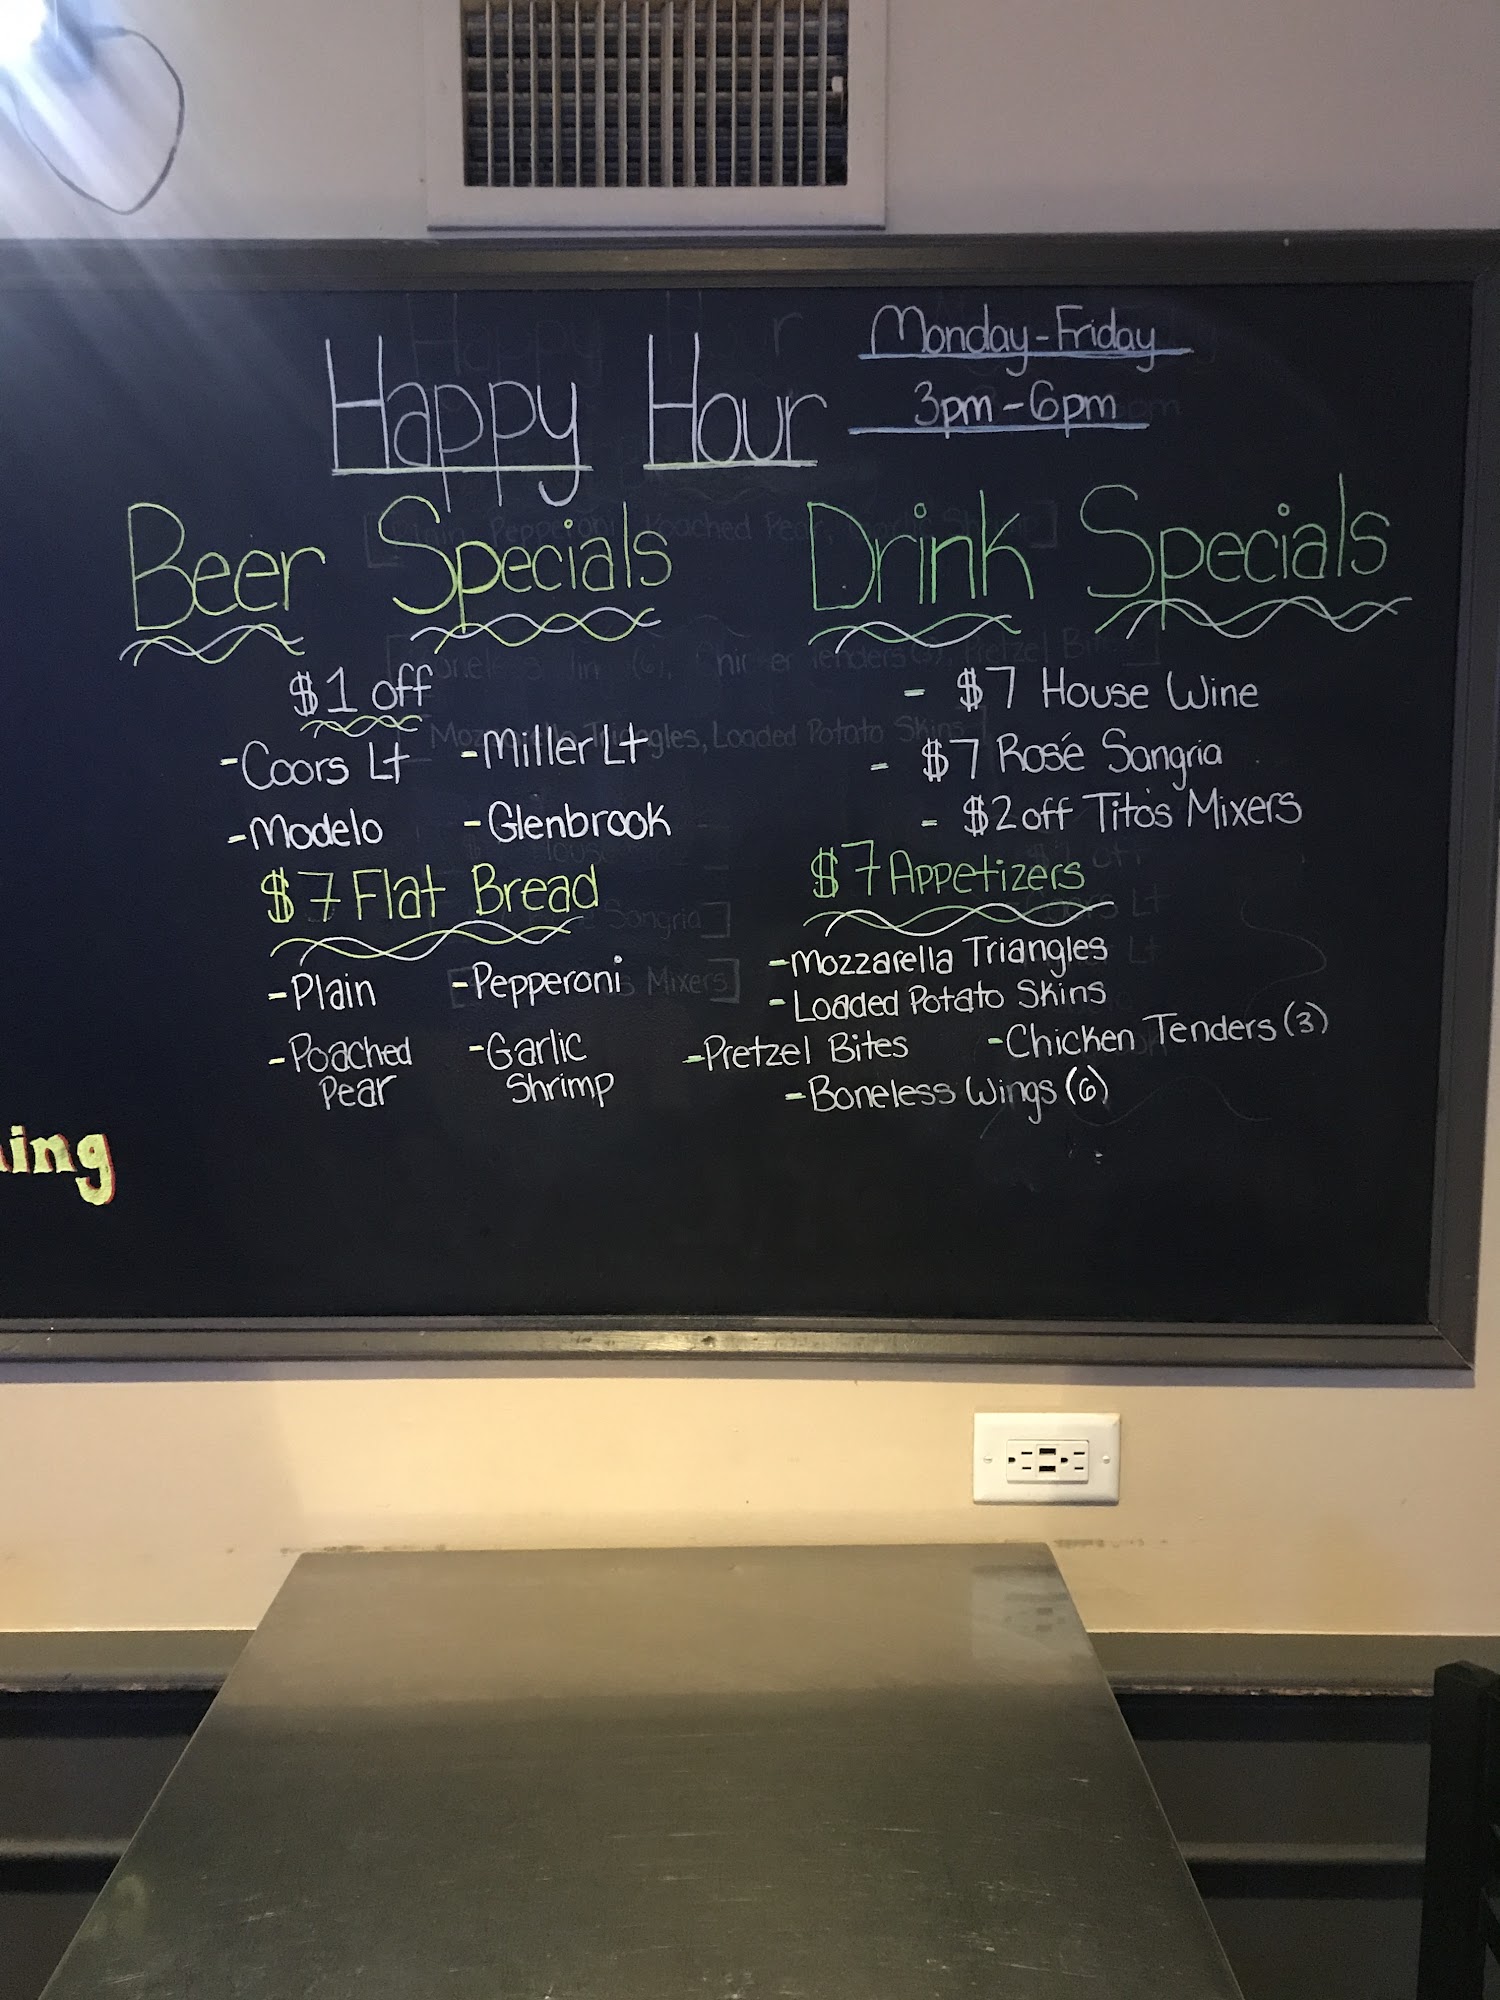 Happy Hour
Monday-Friday
3pm-6pm
Beer Specials
$1 off
-Coors Lt -Miller Lt
-Modelo -Glenbrook
$7 Flat Bread
-Plain -Pepperoni
-Poached Pear
-Garlic Shrimp
Drink Specials
- $7 House Wine
- $7 Rosé Sangria
- $2 off Tito's Mixers
$7 Appetizers
-Mozzarella Triangles
-Loaded Potato Skins
-Pretzel Bites -Chicken Tenders (3)
-Boneless Wings (6)